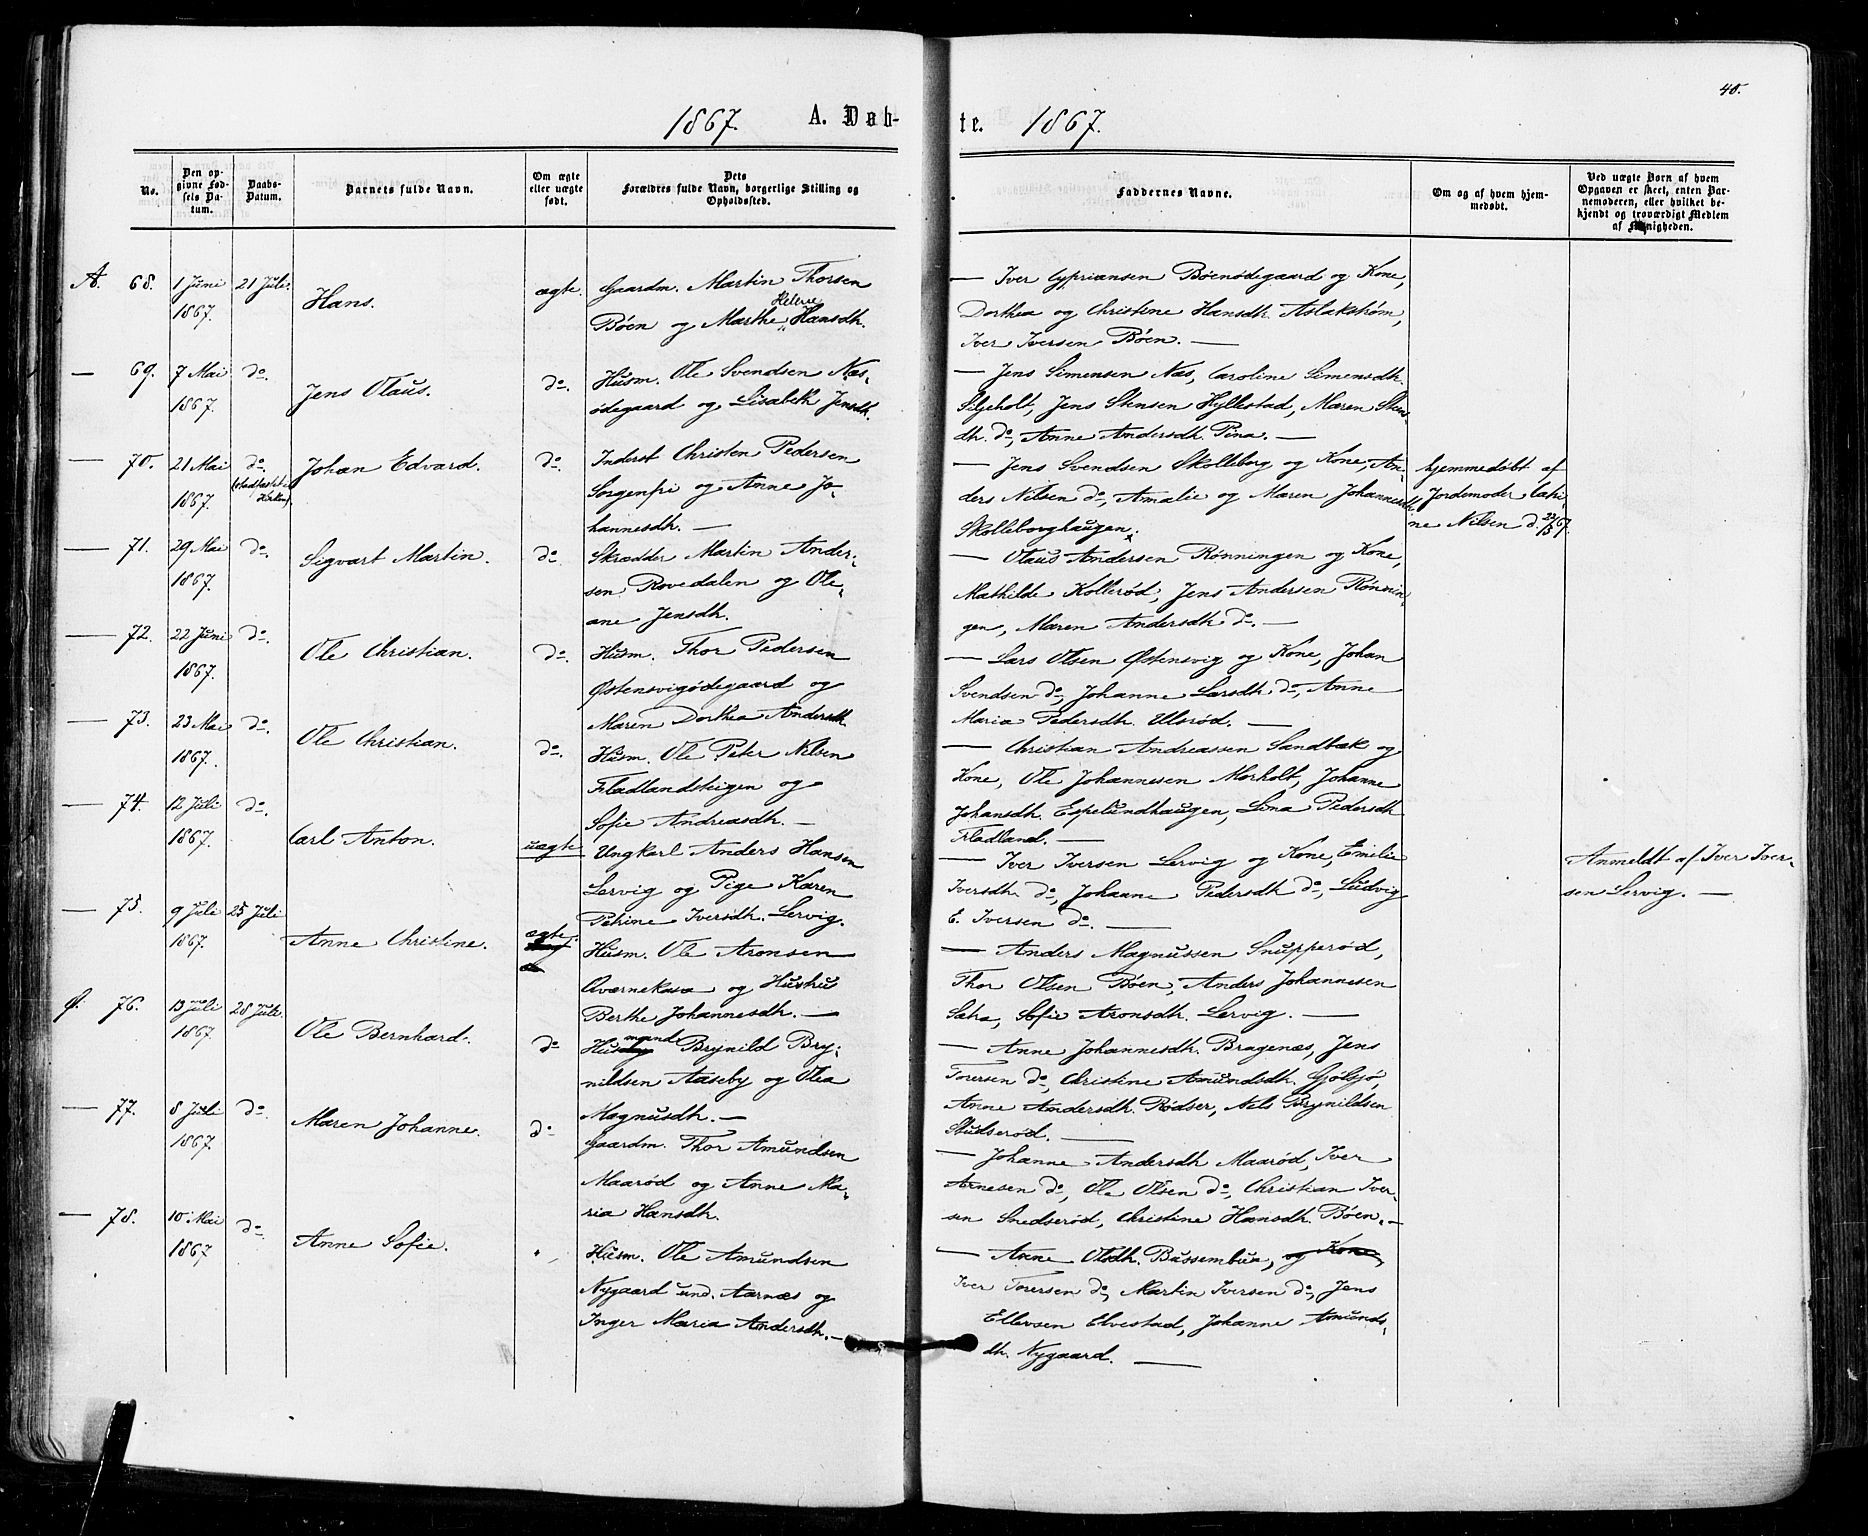 48.
1867. A. Døb-
te. 1867.
No.
Den op-
givne Fød-
sels Da-
tum.
Daabs-
Datum.
Barnets fulde Navn.
Om ægte
eller uægte
født.
Dets
Forældres fulde Navn, borgerlige Stilling og
Opholdssted.
Faddernes Navne.
Om og af hvem hjem-
medøbt.
Ved uægte Børn af hvem
Opgaven er skeet, enten Bar-
nemoderen, eller hvilket be-
kjendt og troværdigt Medlem
af Menigheden.
A. 68. 1 Juni 21 Juli.
1867.
Hans.
ægte.
Gaardm. Martin Thorsen
Helene
Bøen og Marthe Hansdh.
— Iver Cypriansen Bøenødegaard og Kone,
Dorthea og Christine Hansdh. Aslakstrøm,
Iver Iversen Bøen. —
— 69. 7 Mai do.
1867.
Jens Olaus.
do.
Husm. Ole Svendsen Næs-
ødegaard og Lisabeth Jensdh.
— Jens Simensen Næs, Caroline Simensdh.
Siljeholt, Jens Stensen Hyllestad, Maren Sten-
dh. do, Anne Andersdh. Pina. —
— 70. 21 Mai do.
1867.
Johan Edvard.
do.
Inderst Christen Pedersen
Sorgenfri og Anne Jo-
hannesdh. —
— Jens Svendsen Skolleborg og Kone, An-
ders Nilsen do, Amalie og Maren Johannesdh
Skolleborghaugen.
hjemmedøbt af
Jordemoder Cathri-
ne Nilsen d. 22/5 67.
— 71. 29 Mai do.
1867.
Sigvart Martin.
do.
Skrædder Martin Ander-
sen Rovedalen og Ole-
ane Jensdh.
— Olaus Andersen Rønningen og Kone,
Mathilde Kollerød, Jens Andersen Rønnin-
gen, Maren Andersdh do. —
— 72. 22 Juni do.
1867.
Ole Christian.
do.
Husm. Thor Pedersen
Østensvigødegaard og
Maren Dorthea Andersdh.
— Lars Olsen Østensvig og Kone, Johan
Svendsen do, Johanne Larsdh. do, Anne
Maria Pedersdh. Ulsrød. —
— 73. 23 Mai do.
1867.
Ole Christian.
do.
Husm. Ole Peter Nilsen
Fladlandsteigen og
Sofie Andreasdh. —
— Christian Andreassen Sandbæk og
Kone, Ole Johannesen Morholt, Johanne
Johansdh. Espelundhaugen, Lina Pedersdh
Fladland. —
— 74. 12 Juli do.
1867.
Carl Anton.
uægte
Ungkarl Anders Hansen
Lervig og Pige Karen
Petrine Iversdh. Lervig.
— Iver Iversen Lervig og Kone, Emilie
Iversdh do, Johanne Pedersdh do, Ludvig
E. Iversen do. —
Anmeldt af Iver Iver-
sen Lervig. —
— 75. 9 Juli 25 Juli
1867.
Anne Christine.
ægte.
Husm. Ole Aronsen
Qværnekasa og Hustru
Berthe Johannesdh. —
— Anders Magnussen Snupperød,
Thor Olsen Bøen, Anders Johannesen
Sætra, Sofie Aronsdh. Lervig. —
Ø. 76. 13 Juli 28 Juli.
1867.
Ole Bernhard.
do
mand
Husby Brynild Bry-
nildsen Aaseby og Olea
Magnusdh. —
— Anne Johannesdh. Bragenæs, Jens
Torersen do, Christine Amundsdh. Gjølsjø,
Anne Andersdh. Rødser, Nils Brynildsen
Studserød. —
— 77. 8 Juli do
1867.
Maren Johanne.
do
Gaardm. Thor Amundsen
Maarød og Anne Ma-
ria Hansdh.
— Johanne Andersdh Maarød, Iver
Arnesen do, Ole Olsen do, Christian Iver-
sen Snedserød, Christine Hansdh. Bøen. —
— 78. 10 Mai do
1867
Anne Sofie.
Husm. Ole Amundsen
Nygaard und. Aarnæs og
Inger Maria Andersdh. —
— Anne Olsdh. Bassembua, og Kone,
Iver Torersen do, Martin Iversen do, Jens
Ellevsen Elvestad, Johanne Amunds-
dh. Nygaard. —